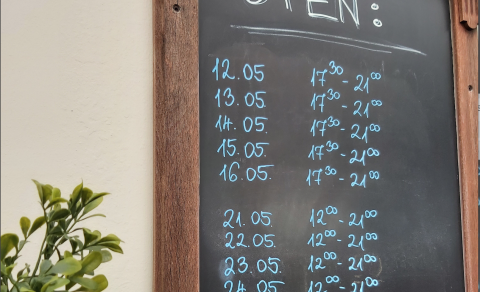 OPEN:
12.05 17³⁰ - 21⁰⁰
13.05. 17³⁰ - 21⁰⁰
14.05. 17³⁰ - 21⁰⁰
15.05. 17³⁰ - 21⁰⁰
16.05. 17³⁰ - 21⁰⁰
21.05. 12⁰⁰ - 21⁰⁰
22.05. 12⁰⁰ - 21⁰⁰
23.05. 12⁰⁰ - 21⁰⁰
24.05. 12⁰⁰ - 21⁰⁰